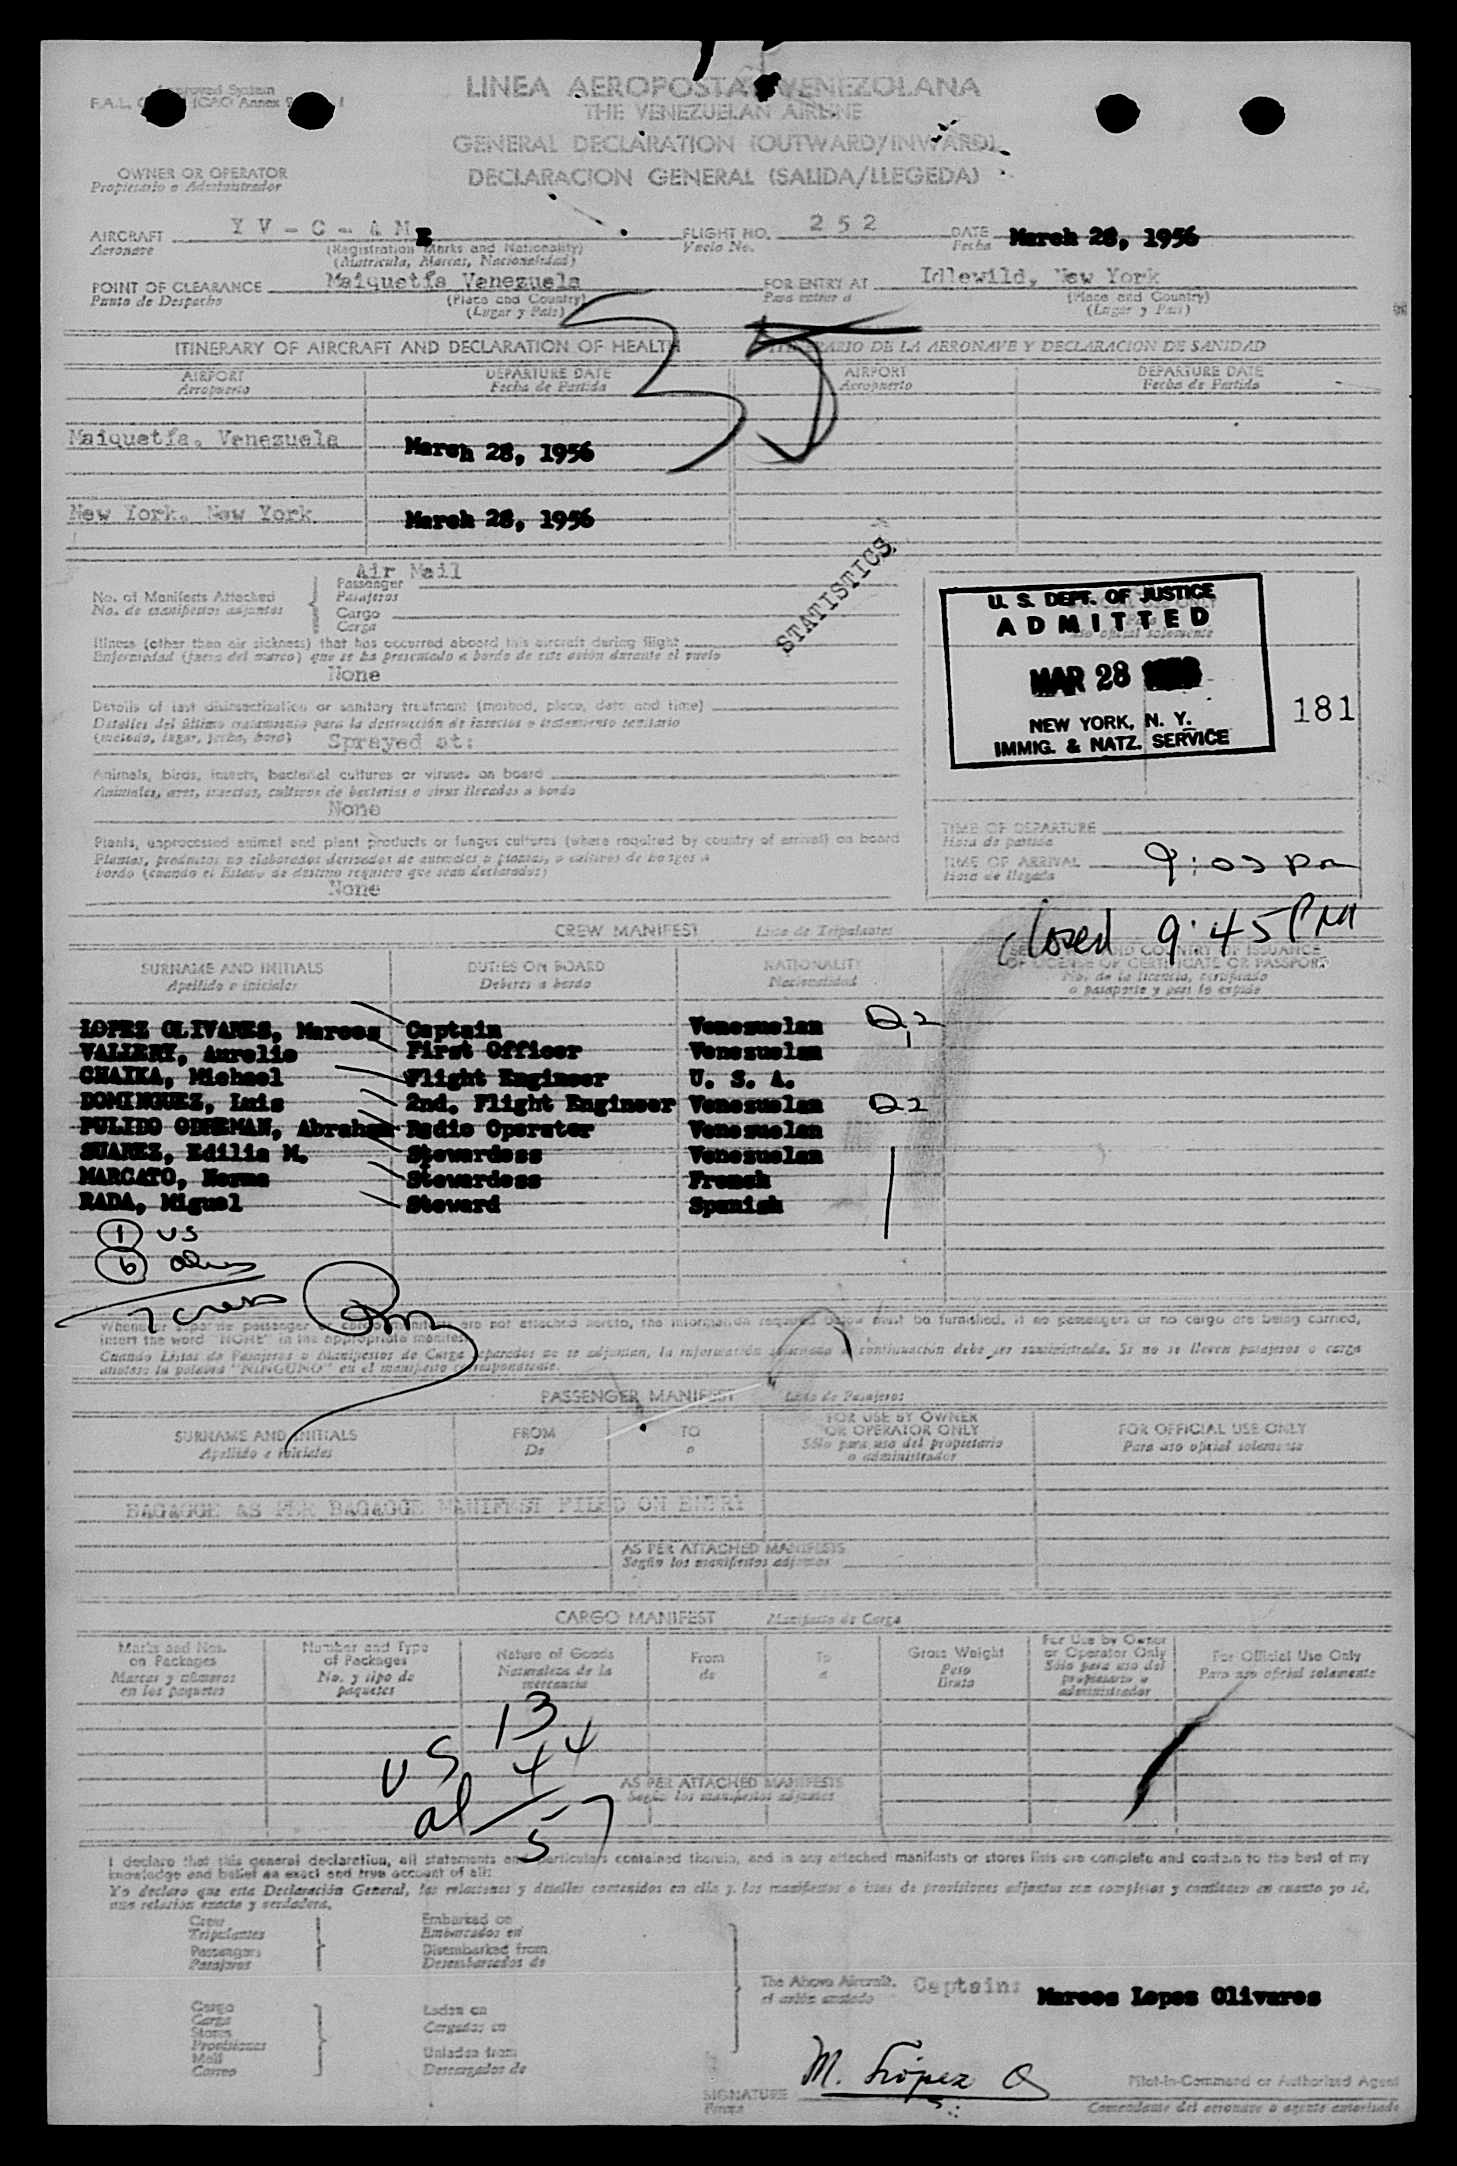 Approved System
LINEA AEROPOSTAL VENEZOLANA
THE VENEZUELAN AIRLINE
GENERAL DECLARATION (OUTWARD/INWARD)
DECLARACION GENERAL (SALIDA/LLEGEDA)
OWNER OR OPERATOR
Propietario o Administrador
AIRCRAFT YV-C-AME FLIGHT NO. 252 DATE March 28, 1956
Aeronave (Registration Marks and Nationality) Vuelo No. Fecha
(Matricula, Marcas, Nacionalidad)
POINT OF CLEARANCE Maiquetía Venezuela FOR ENTRY AT Idlewild, New York
Punto de Despacho (Place and Country) Para entrar a (Place and Country)
(Lugar y Pais) (Lugar y Pais)
35
ITINERARY OF AIRCRAFT AND DECLARATION OF HEALTH ITINERARIO DE LA AERONAVE Y DECLARACION DE SANIDAD
AIRPORT DEPARTURE DATE AIRPORT DEPARTURE DATE
Aeropuerto Fecha de Partida Aeropuerto Fecha de Partida
Maiquetía, Venezuela March 28, 1956
New York, New York March 28, 1956
STATISTICS
Air Mail
No. of Manifests Attached Passenger
No. de manifiestos adjuntos Pasajeros
Cargo
Carga
Illness (other than air sickness) that has occurred aboard this aircraft during flight
Enfermedad (fuera del mareo) que se ha presentado a bordo de este avión durante el vuelo
None
Details of last disinsectization or sanitary treatment (method, place, date and time)
Detalles del último tratamiento para la destrucción de insectos o tratamiento sanitario
(método, lugar, fecha, hora) Sprayed at:
Animals, birds, insects, bacterial cultures or viruses on board
Animales, aves, insectos, cultivos de bacterias o virus llevados a bordo
None
Plants, unprocessed animal and plant products or fungus cultures (where required by country of arrival) on board
Plantas, productos no elaborados derivados de animales o plantas, o cultivos de hongos a
bordo (cuando el Estado de destino requiera que sean declarados)
None
U. S. DEPT. OF JUSTICE
ADMITTED
MAR 28
NEW YORK, N. Y.
IMMIG. & NATZ. SERVICE
181
TIME OF DEPARTURE
Hora de partida
TIME OF ARRIVAL 9:03 pm
Hora de llegada
closed 9:45 PM
CREW MANIFEST Lista de Tripulantes
SURNAME AND INITIALS DUTIES ON BOARD NATIONALITY
Apellido e iniciales Deberes a bordo Nacionalidad
OF LICENSE OF CERTIFICATE OR PASSPORT
No. de la licencia, certificado
o pasaporte y pais lo expide
LOPEZ OLIVARES, Marcos Captain Venezuelan D2
VALLERY, Aurelio First Officer Venezuelan
CHAIKA, Michael Flight Engineer U. S. A.
DOMINGUEZ, Luis 2nd. Flight Engineer Venezuelan D2
Abraham Radio Operator Venezuelan
SUAREZ, Edilia M. Stewardess Venezuelan
MARCATO, Norma Stewardess French
RADA, Miguel Steward Spanish
1 US
6
7 crew
insert the word "NONE" in the appropriate manifest
PASSENGER MANIFEST Lista de Pasajeros
SURNAME AND INITIALS FROM TO FOR USE BY OWNER OR OPERATOR ONLY FOR OFFICIAL USE ONLY
Apellido e iniciales De a Sólo para uso del propietario o administrador Para uso oficial solamente
BAGAGGE AS PER BAGAGGE MANIFEST FILED ON ENTRY
AS PER ATTACHED MANIFESTS
Según los manifiestos adjuntos
CARGO MANIFEST Manifiesto de Carga
Marks and Nos. on Packages Number and Type of Packages Nature of Goods From To Gross Weight For Use by Owner or Operator Only For Official Use Only
Marcas y números en los paquetes No. y tipo de paquetes Naturaleza de la mercancia de a Peso Bruto Sólo para uso del propietario o administrador Para uso oficial solamente
US 13
al 44
57
AS PER ATTACHED MANIFESTS
Según los manifiestos adjuntos
I declare that this general declaration, all statements and particulars contained therein, and in any attached manifests or stores lists are complete and contain to the best of my
knowledge and belief an exact and true account of all:
Crew Embarked on
Tripulantes Embarcados en
Passengers Disembarked from
Pasajeros Desembarcados de
The Above Aircraft. Captain: Marcos Lopez Olivares
el avión anotado
Cargo Laden on
Carga Cargados en
Stores
Provisiones
Mail Unladen from
Correo Descargados de
SIGNATURE M. López O Pilot-in-Command or Authorized Agent
Firma Comandante del aeronave o agente autorizado